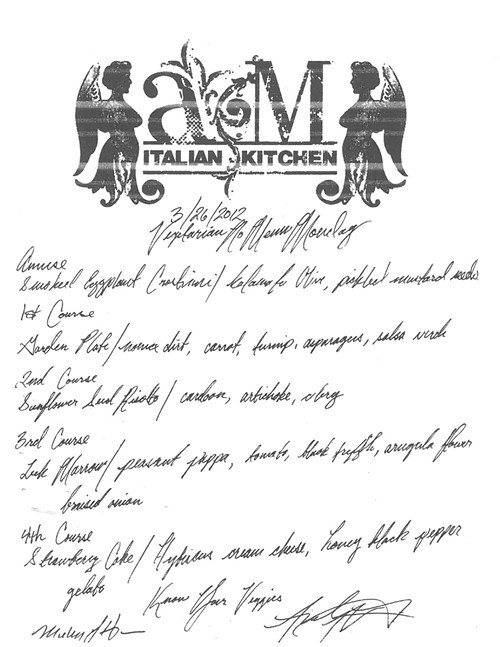 a M
ITALIAN KITCHEN
3/26/2012
Vegetarian No Menu Monday
Amuse
Smoked Eggplant Crostini / kalamata Olive, pickled mustard seeds
1st Course
Garden Plate / dirt, carrot, turnip, asparagus, salsa verde
2nd Course
Sunflower Seed Risotto / cardoon, artichoke, celery
3rd Course
Leek Marrow / peasant pappa, tomato, black truffle, arugula flower
braised onion
4th Course
Strawberry Cake / Hybiscus cream cheese, honey black pepper
gelato
Know Your Veggies